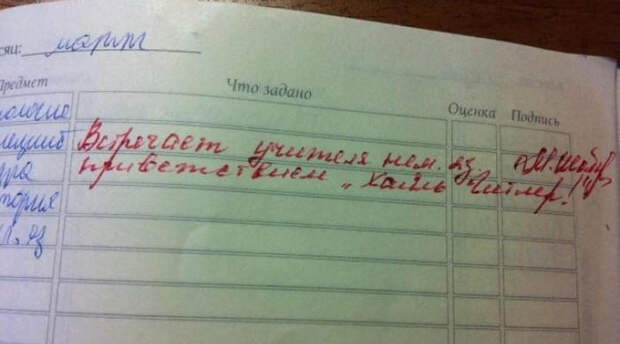 сяц: март
Предмет Что задано Оценка Подпись
ология
Встречает учителя нем. яз
приветствием „Хайль Гитлер!"
тория